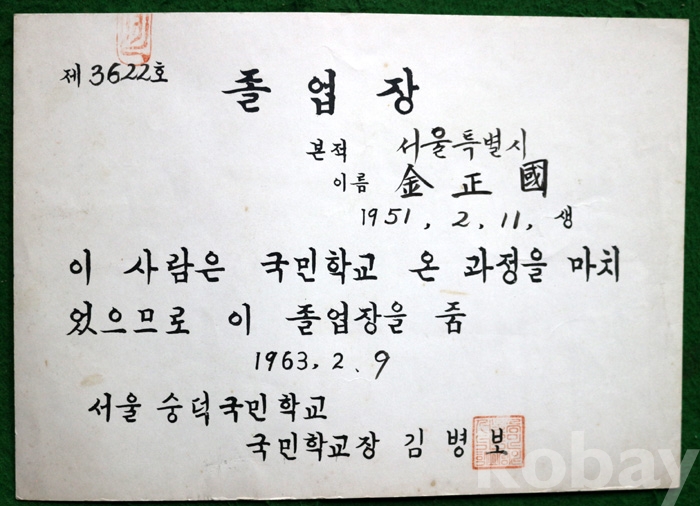 제 3622호
졸업장
본적 서울특별시
이름 金正國
1951. 2. 11. 생
이 사람은 국민학교 온 과정을 마치
었으므로 이 졸업장을 줌
1963. 2. 9
서울 숭덕국민학교
국민학교장 김병보
kobay